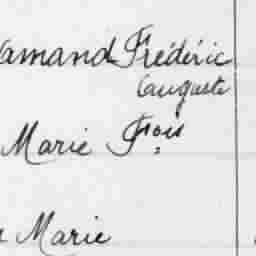 amand Frédéric
Auguste
Marie Fois
Marie